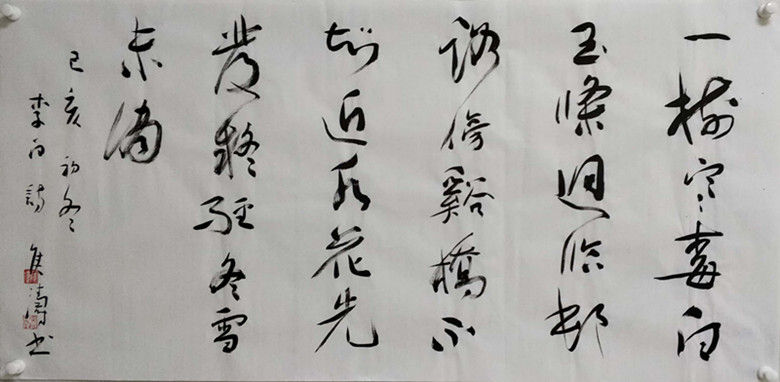 一樹寒梅白
玉條迥临邨
路傍谿橋不
知近水花先
發疑經冬雪
未消
己亥初冬
李白詩 濤书